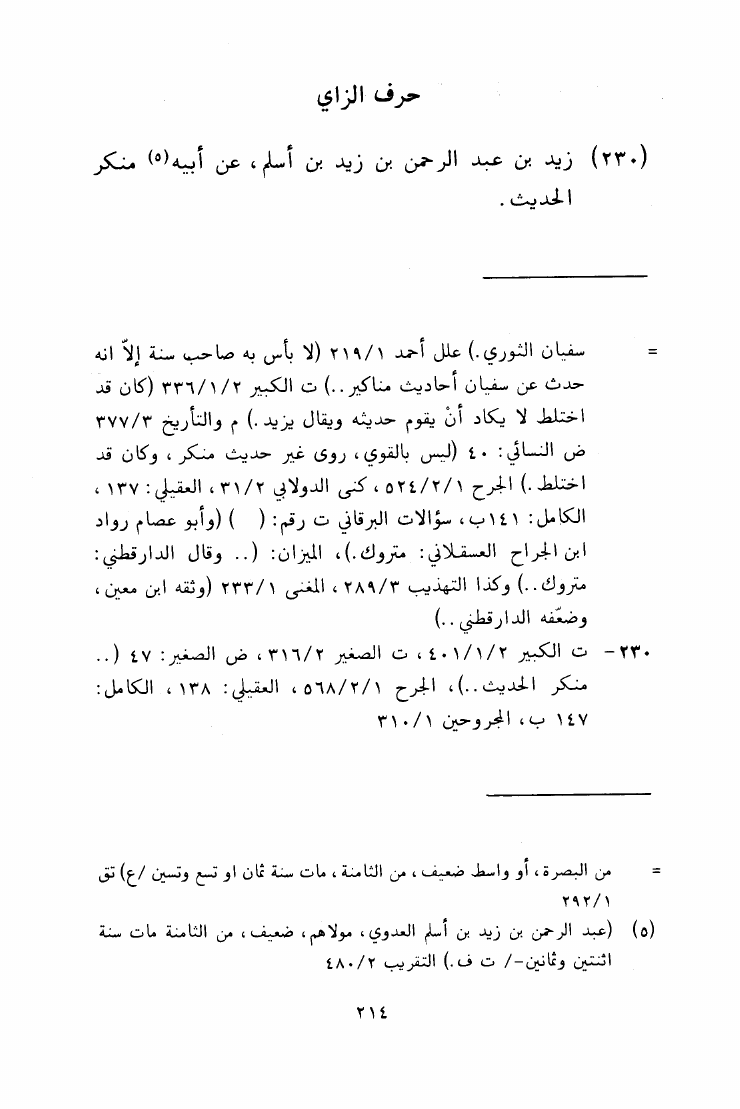 حرف الزاي
(٢٣٠) زيد بن عبد الرحمن بن زيد بن أسلم، عن أبيه(٥) منكر
الحديث.
= سفيان الثوري.) علل أحمد ٢١٩/١ (لا بأس به صاحب سنة إلاّ انه
حدث عن سفيان أحاديث مناكير..) ت الكبير ٣٣٦/١/٢ (كان قد
اختلط لا يكاد أنْ يقوم حديثه ويقال يزيد.) م والتأريخ ٣٧٧/٣
ض النسائي: ٤٠ (ليس بالقوي، روى غير حديث منكر، وكان قد
اختلط.) الجرح ٥٢٤/٢/١، كنى الدولابي ٣١/٢، العقيلي: ١٣٧،
الكامل: ١٤١ب، سؤالات البرقاني ت رقم: (  ) (وأبو عصام رواد
ابن الجراح العسقلاني: متروك.)، الميزان: (.. وقال الدارقطني:
متروك..) وكذا التهذيب ٢٨٩/٣، المغنى ٢٣٣/١ (وثقه ابن معين،
وضعّفه الدارقطني..)
٢٣٠- ت الكبير ٤٠١/١/٢، ت الصغير ٣١٦/٢، ض الصغير: ٤٧ (..
منكر الحديث..)، الجرح ٥٦٨/٢/١، العقيلي: ١٣٨، الكامل:
١٤٧ ب، المجروحين ٣١٠/١
= من البصرة، أو واسط ضعيف، من الثامنة، مات سنة ثمان او تسع وتسين /ع) تق
٢٩٢/١
(٥) (عبد الرحمن بن زيد بن أسلم العدوي، مولاهم، ضعيف، من الثامنة مات سنة
اثنتين وثمانين-/ ت ف.) التقريب ٤٨٠/٢
٢١٤